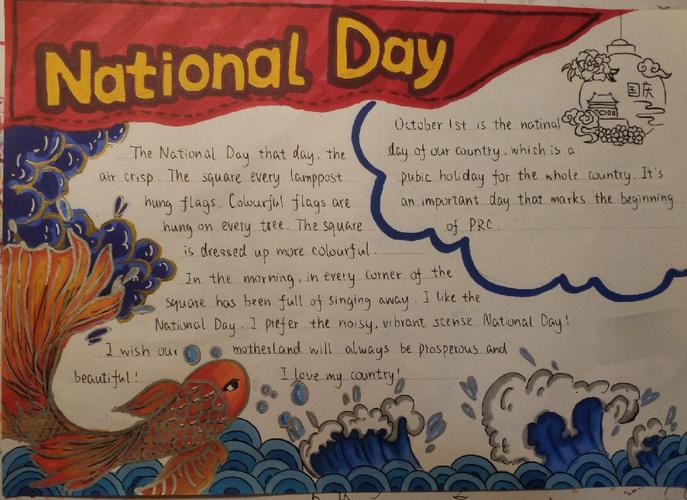 National Day
国庆
October 1st is the natinal
day of our country, which is a
pubic holiday for the whole country. It's
an important day that marks the beginning
of PRC.
The National Day that day, the
air crisp. The square every lamppost
hung flags. Colourful flags are
hung on every tree. The square
is dressed up more colourful.
In the morning, in every corner of the
square has been full of singing away. I like the
National Day. I prefer the noisy, vibrant scense National Day!
I wish our motherland will always be prosperous and
beautiful! I love my country!